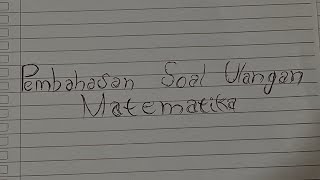 Pembahasan Soal Ulangan
Matematika